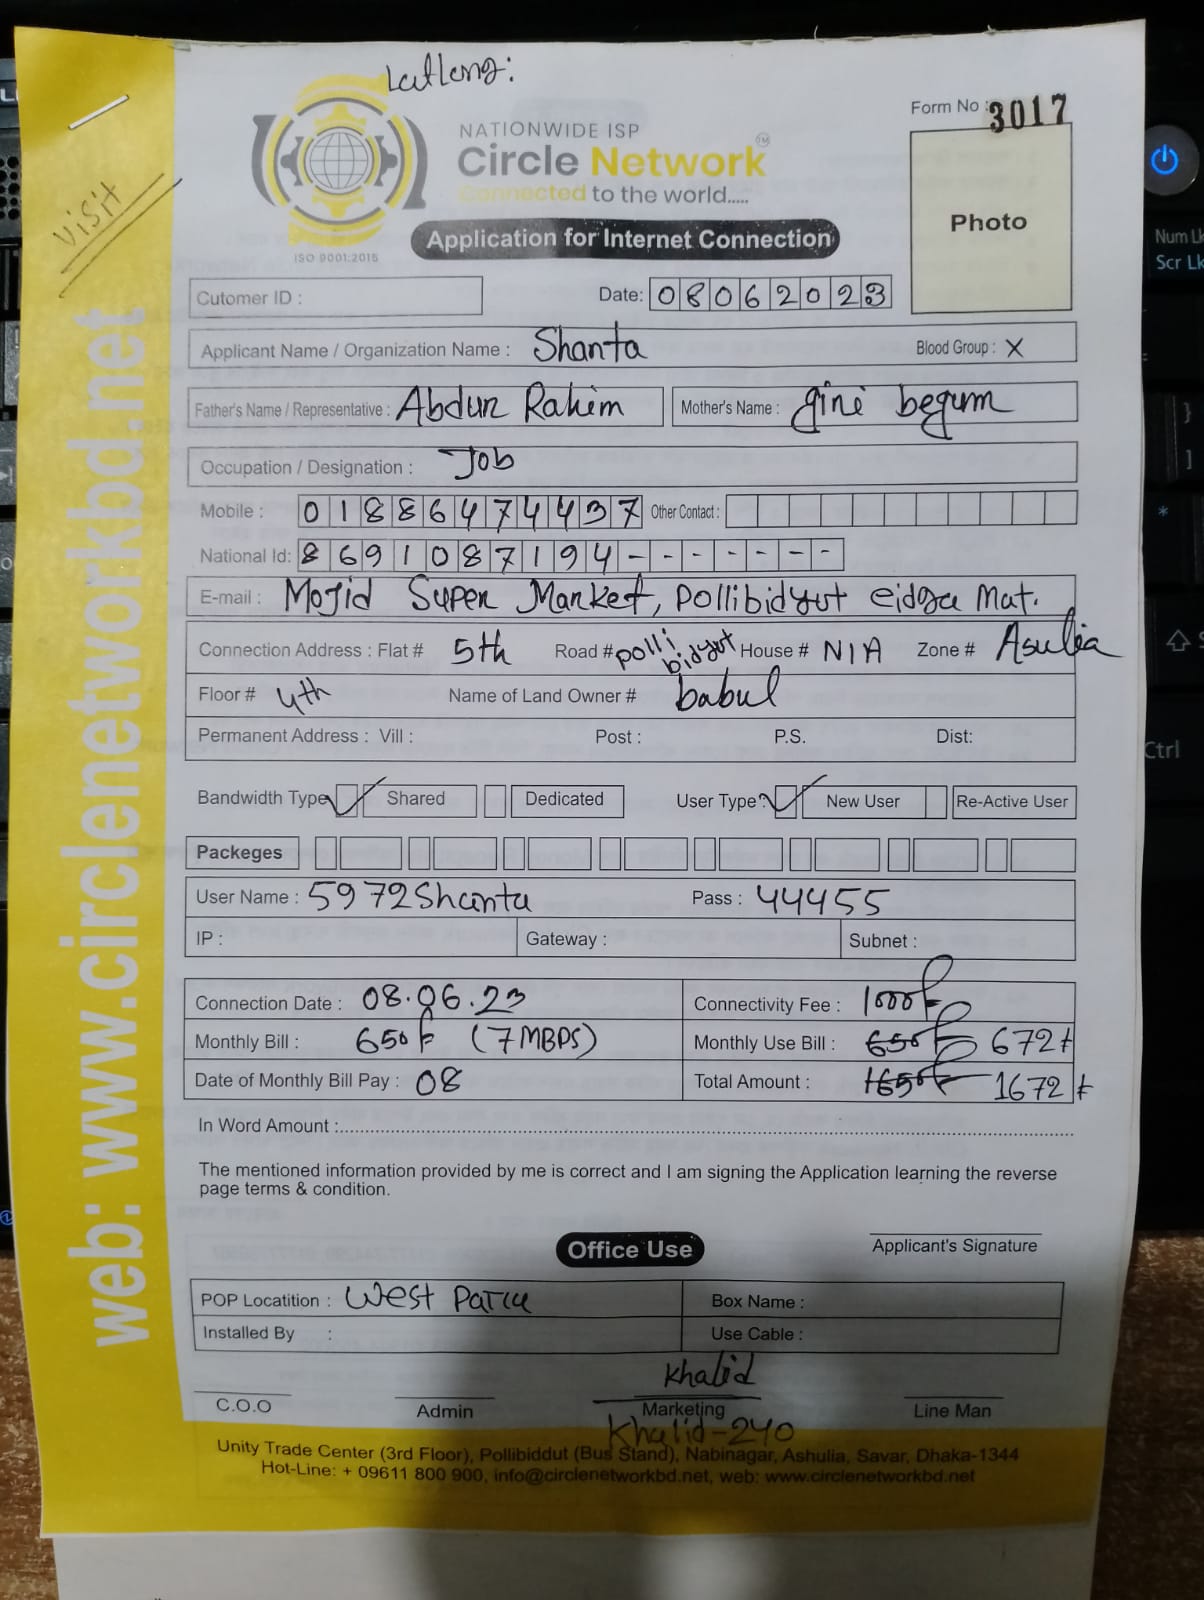 Form No : 3017
NATIONWIDE ISP
Circle Network TM
Connected to the world.....
ISO 9001:2015
Application for Internet Connection
Photo
VISIT
web: www.circlenetworkbd.net
Cutomer ID :
Date: 08062023
Applicant Name / Organization Name : Shanta Blood Group : X
Father's Name / Representative : Abdur Rahim Mother's Name : gini begum
Occupation / Designation : Job
Mobile : 01886474437 Other Contact :
National Id: 8691087194-------
E-mail : Mojid Super Market, Pollibidyut eidga Mat.
Connection Address : Flat # 5th Road # polli bidyut House # N/A Zone # Asulia
Floor # 4th Name of Land Owner # babul
Permanent Address : Vill : Post : P.S. Dist:
Bandwidth Type: Shared Dedicated User Type: New User Re-Active User
Packeges
User Name : 5972Shanta Pass : 44455
IP : Gateway : Subnet :
Connection Date : 08.06.23 Connectivity Fee : 1000৳
Monthly Bill : 650৳ (7MBPS) Monthly Use Bill : 650৳ 672৳
Date of Monthly Bill Pay : 08 Total Amount : 1650৳ 1672৳
In Word Amount :
The mentioned information provided by me is correct and I am signing the Application learning the reverse
page terms & condition.
Applicant's Signature
Office Use
POP Locatition : West Para Box Name :
Installed By : Use Cable :
Khalid
C.O.O Admin Marketing Line Man
Khalid-240
Unity Trade Center (3rd Floor), Pollibiddut (Bus Stand), Nabinagar, Ashulia, Savar, Dhaka-1344
Hot-Line: + 09611 800 900, info@circlenetworkbd.net, web: www.circlenetworkbd.net
Num Lk
Scr Lk
Ctrl